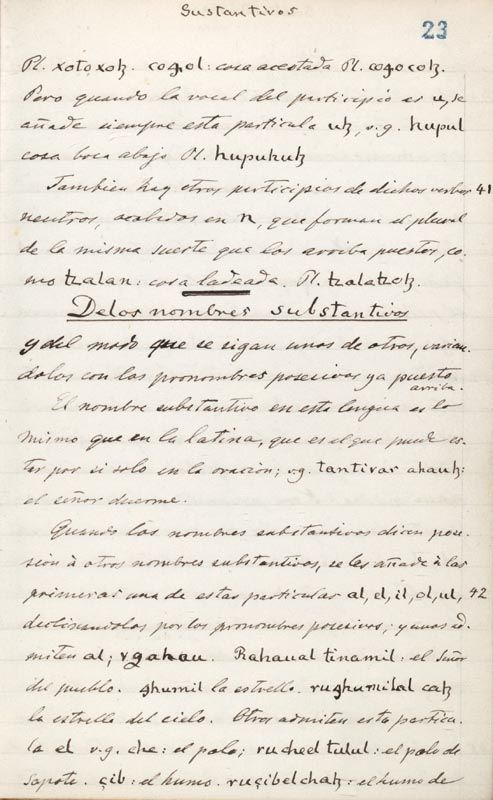 Sustantivos
23
Pl. xotoxoꜩ. cogol: cosa acostada Pl. cogocoꜩ.
Pero quando la vocal del participio es u, se
añade siempre esta particula uꜩ, v.g. hupul
cosa boca abajo Pl. hupuhuꜩ
Tambien hay otros participios de dichos verbos 41
neutros, acabados en n, que forman el plural
de la misma suerte que los arriba puestos, co-
mo tzalan: cosa ladeada. Pl. tzalatzoꜩ.
Delos nombres substantivos
y del modo que se sigan unos de otros, varian-
dolos con los pronombres posesivos ya puesto
arriba.
El nombre substantivo en esta lengua es lo
mismo que en la latina, que es el que puede es-
tar por si solo en la oracion; v.g. tantivar ahauꜩ:
el señor duerme.
Quando los nombres substantivos dicen pose-
sion à otros nombres substantivos, se les añade à los
primeros una de estas particulas al, el, il, ol, ul, 42
declinandolos por los pronombres posesivos; y unos ad-
miten al; v g ahau. Rahaual tinamil: el Señor
del pueblo. ghumil la estrella. rughumilal caꜩ
la estrella del cielo. Otros admiten esta particu-
la el v.g. che: el palo; rucheel tulul: el palo de
Sapote. çib: el humo. ruçibel chaꜩ: el humo de